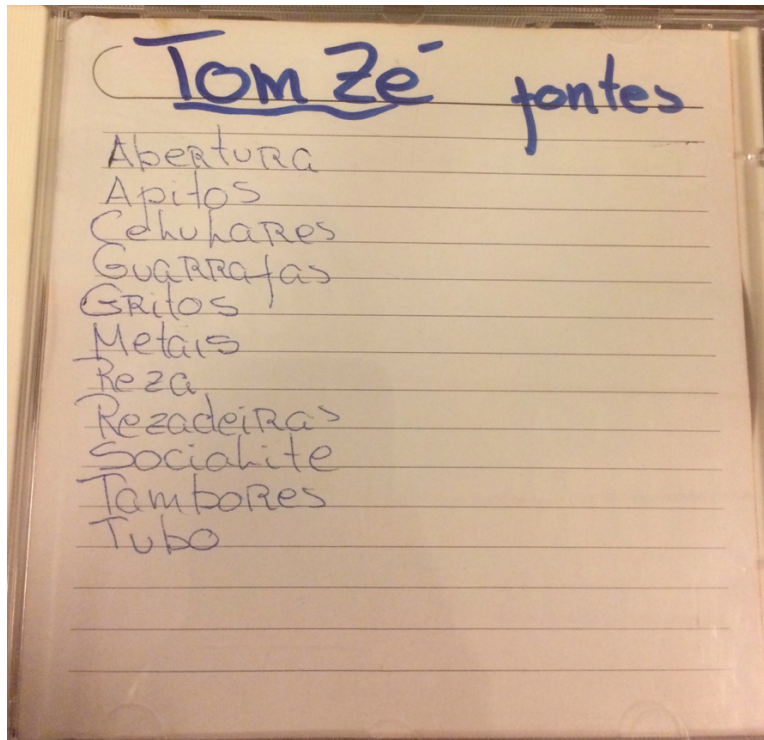 Tom Zé fontes
Abertura
Apitos
Celulares
Guarrafas
Gritos
Metais
Reza
Rezadeiras
Socialite
Tambores
Tubo